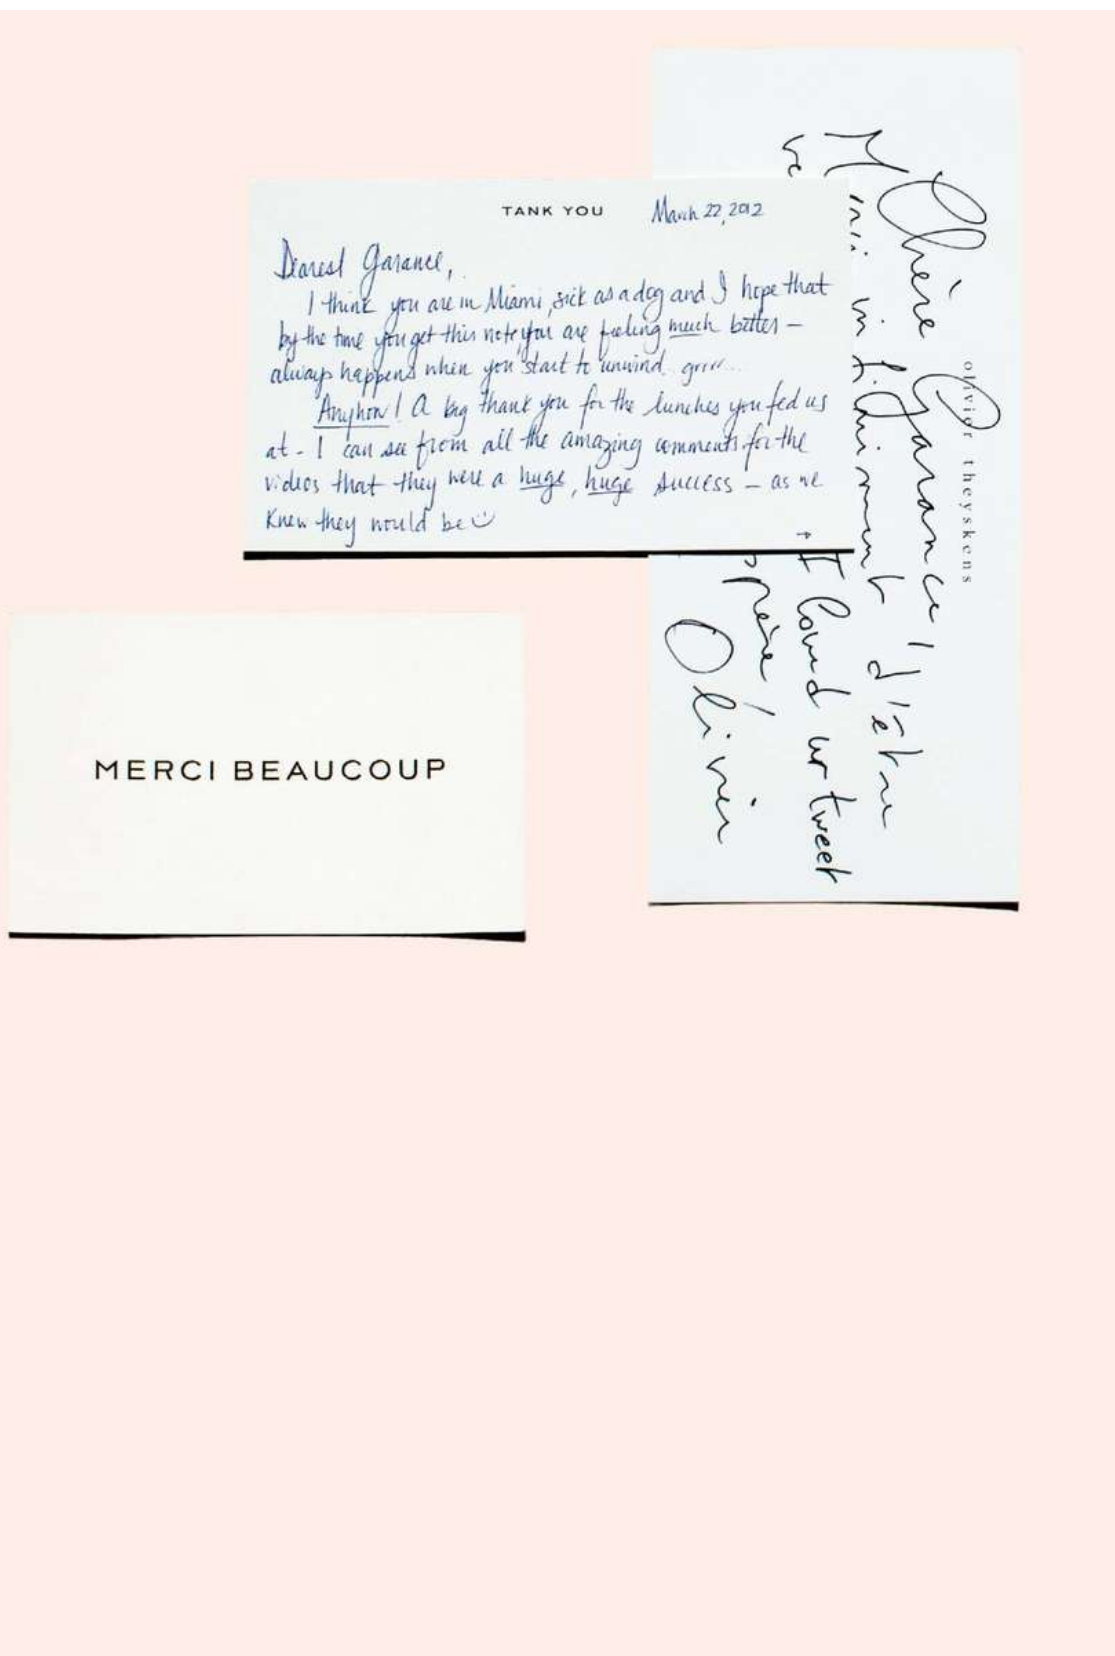 TANK YOU
March 22, 2012
Dearest Garance,
I think you are in Miami, sick as a dog and I hope that
by the time you get this note, you are feeling much better –
always happens when you start to unwind. grrr...
Anyhow! A big thank you for the lunches you fed us
at - I can see from all the amazing comments for the
videos that they were a huge, huge success – as we
knew they would be
MERCI BEAUCOUP
olivier theyskens
Chère Garance,
infiniment d'être
I loved ur tweet
Olivier